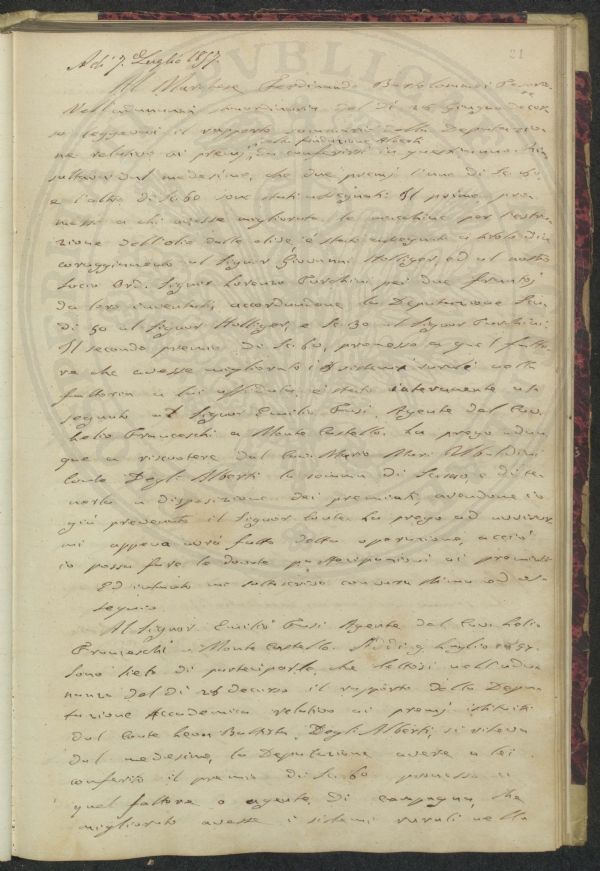 21
A dì 7. Luglio 1857.
Al Marchese Ferdinando Bartolommei
Nell'adunanza straordinaria del dì 28 Giugno decor
so leggevasi il rapporto sommario della Deputazio
della fondazione Alberti
ne relativo ai premj da conferirsi in quest'anno. Ri
sultava dal medesimo, che due premj l'uno di Sc. 60.
e l'altro di Sc. 60 sono stati assegnati. Il primo, pro
messo a chi avesse migliorate le macchine per l'estra
zione dell'olio dalle olive, è stato assegnato a titolo d'in
coraggiamento al Signor Giovanni Holliger, ed al nostro
Socio Ord. Signor Lorenzo Turchini per due frantoj
da loro inventati, accordandone la Deputazione Scu
di 30 al Signor Holliger, e Sc. 30 al Signor Turchini.
Il secondo premio di Sc. 60, promesso a quel fatto
re che avesse migliorato i sistemi rurali nella
fattoria a lui affidata, è stato interamente as
segnato al Signor Emilio Agente del Cav.
Lelio Franceschi a Monte Castello. La prego adun
que a riscuotere dal Cav. Mario Mori Ubaldini
Conte Degli Alberti la somma di e di te
nerla a disposizione dei premiati, avendone io
già prevenuto il Signor Conte. La prego ad avvisar
mi appena avrà fatta detta operazione, acciò
io possa fare le dovute partecipazioni ai premiati
Ed intanto me sottoscrivo con vera stima ed os
sequio
Al Signor Emilio Agente del Cav. Lelio
Franceschi a Monte Castello. A dì 9 Luglio 1857.
Sono lieto di parteciparle, che lettosi nell'adu
nanza del dì 28 decorso il rapporto della Depu
tazione Accademica relativo ai premj istituiti
dal Conte Leon Battista Degli Alberti, si rileva
dal medesimo, la Deputazione avere a lei
conferito il premio di Sc. 60 promesso a
quel fattore o agente di campagna, che
migliorato avesse i sistemi rurali nella